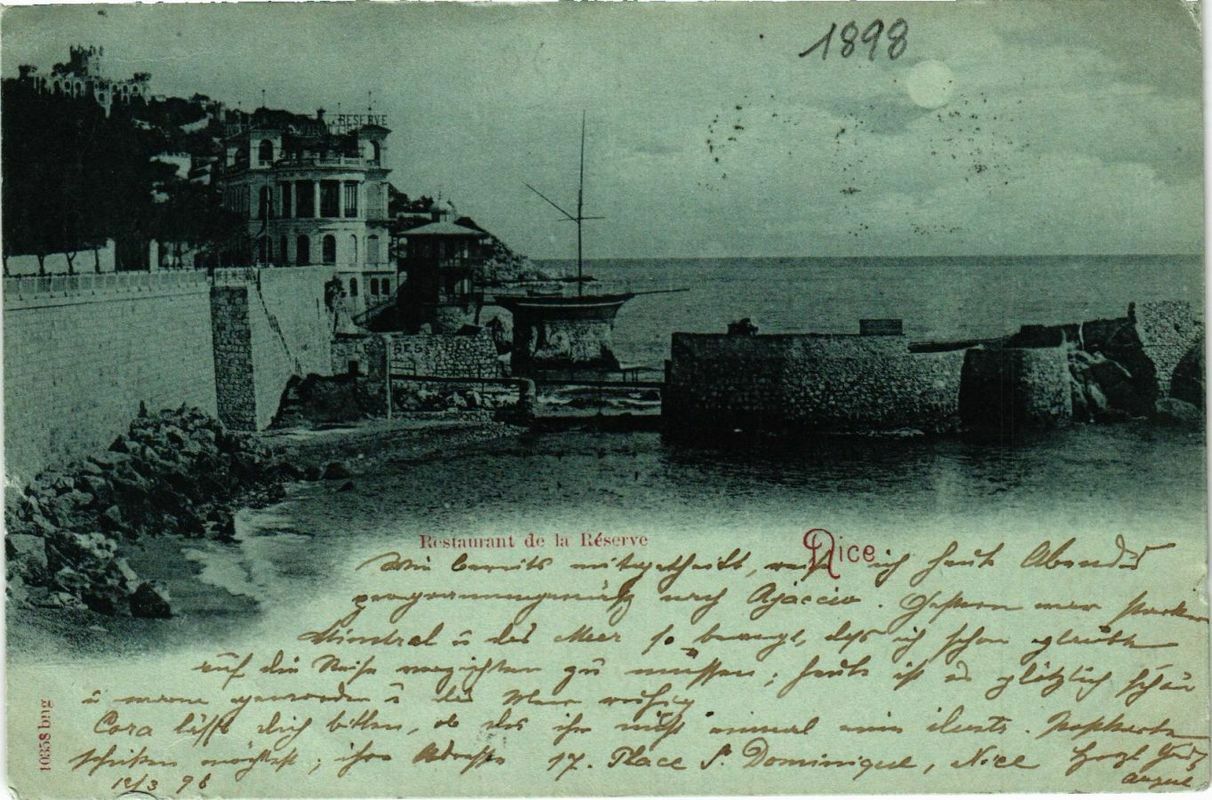 1898
RESERVE
RESERVE
Restaurant de la Réserve
Nice
Wie bereits mitgetheilt, reise ich heute Abend
programmgemäß nach Ajaccio. Gestern war starker
Mistral u das Meer so bewegt, daß ich schon glaubte
auf die Reise verzichten zu müssen; heute ist es plötzlich schön
u warm geworden u das Meer ruhig
Cora läßt dich bitten, ob du ihr nicht einmal eine illustr. Postkarte
schicken möchtest; ihre Adresse 17. Place S. Dominique, Nice Herzl
12/3 98 August
10358 bng